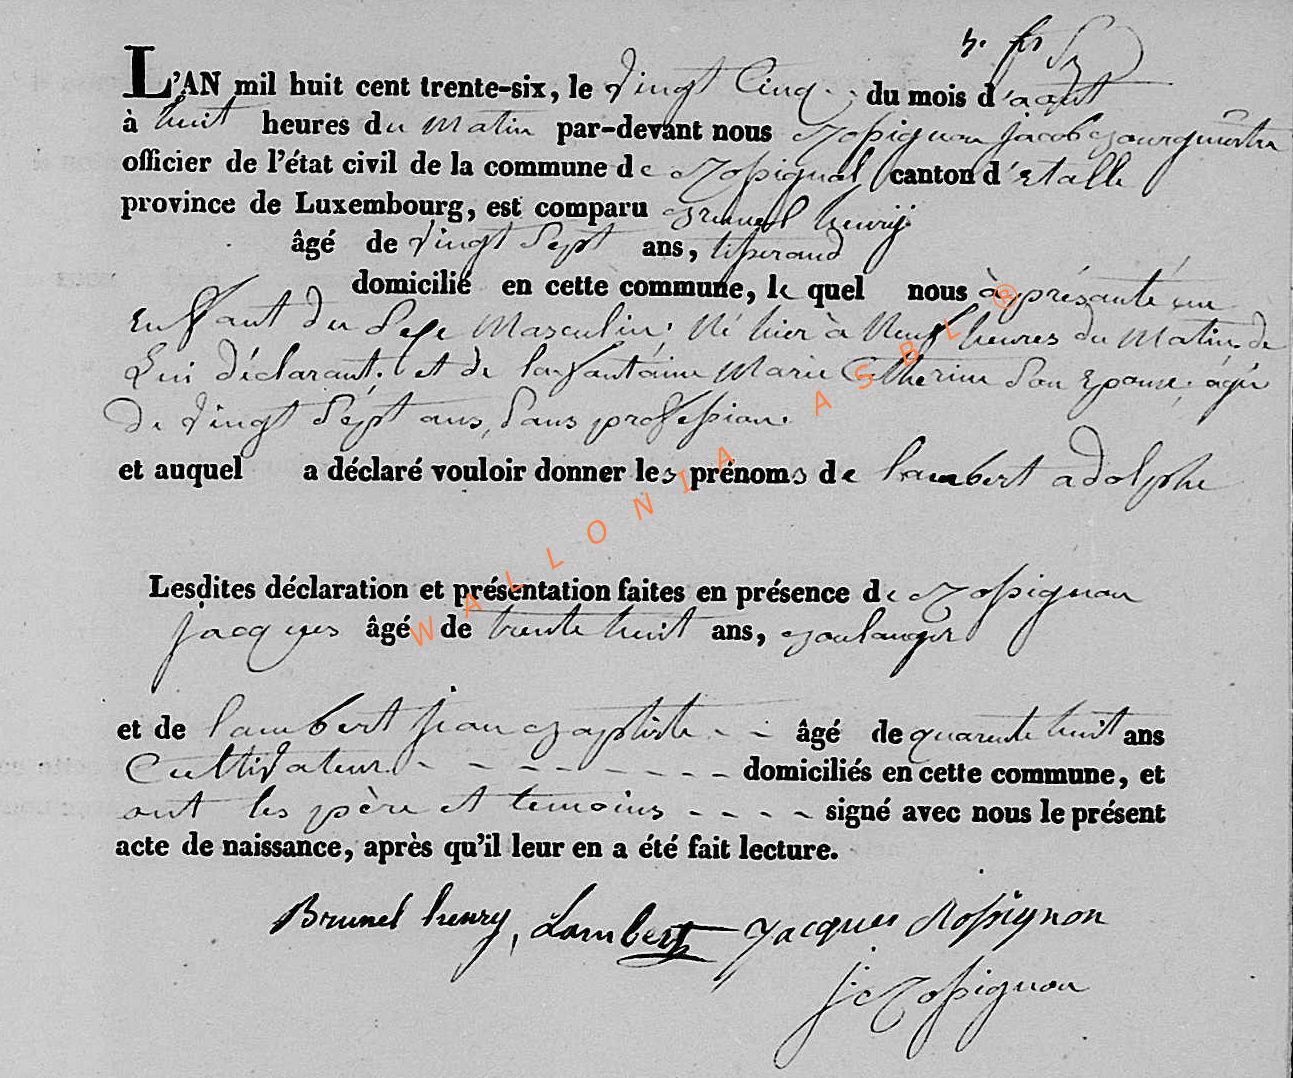 L'AN mil huit cent trente-six, le vingt Cinq du mois d'aout
à huit heures du matin par-devant nous Rossignon jacob bourguestre
officier de l'état civil de la commune de Rossignol canton d'Etalle
province de Luxembourg, est comparu Brunel henry
âgé de vingt Sept ans, tisserand
domicilié en cette commune, le quel nous à présanté un
Enfant du Sexe Masculin, Né hier à Neuf heures du Matin, de
Lui déclarant, et de lafontaine Marie Catherine Son Epouse, agée
de vingt Sept ans, Sans profession.
et auquel a déclaré vouloir donner les prénoms de lambert adolphe
Lesdites déclaration et présentation faites en présence de Rossignon
jacques âgé de trente huit ans, boulanger
et de lambert jean baptiste - - âgé de quarente huit ans
Cultivateur. - - - - - - - - domiciliés en cette commune, et
ont les père et temoins - - - - signé avec nous le présent
acte de naissance, après qu'il leur en a été fait lecture.
Brunel henry, Lambert Jacques Rossignon
j: Rossignon
WALLONIA ASBL ®